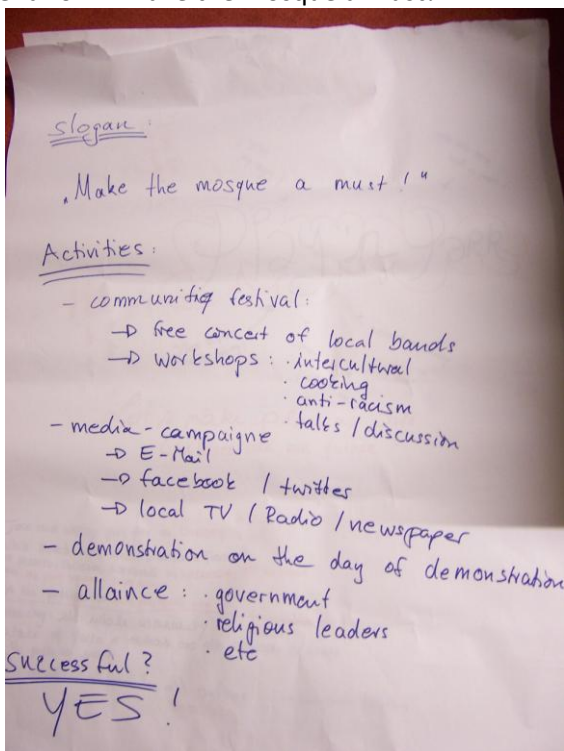 Slogan:
„Make the mosque a must!“
Activities:
- communitiy festival:
→ free concert of local bands
→ workshops: · intercultural
· cooking
· anti-racism
· talks / discussion
- media-campaigne
→ E-Mail
→ facebook / twitter
→ local TV / Radio / newspaper
- demonstration on the day of demonstration
- allaince: · government
· religious leaders
· etc
Successful?
YES!